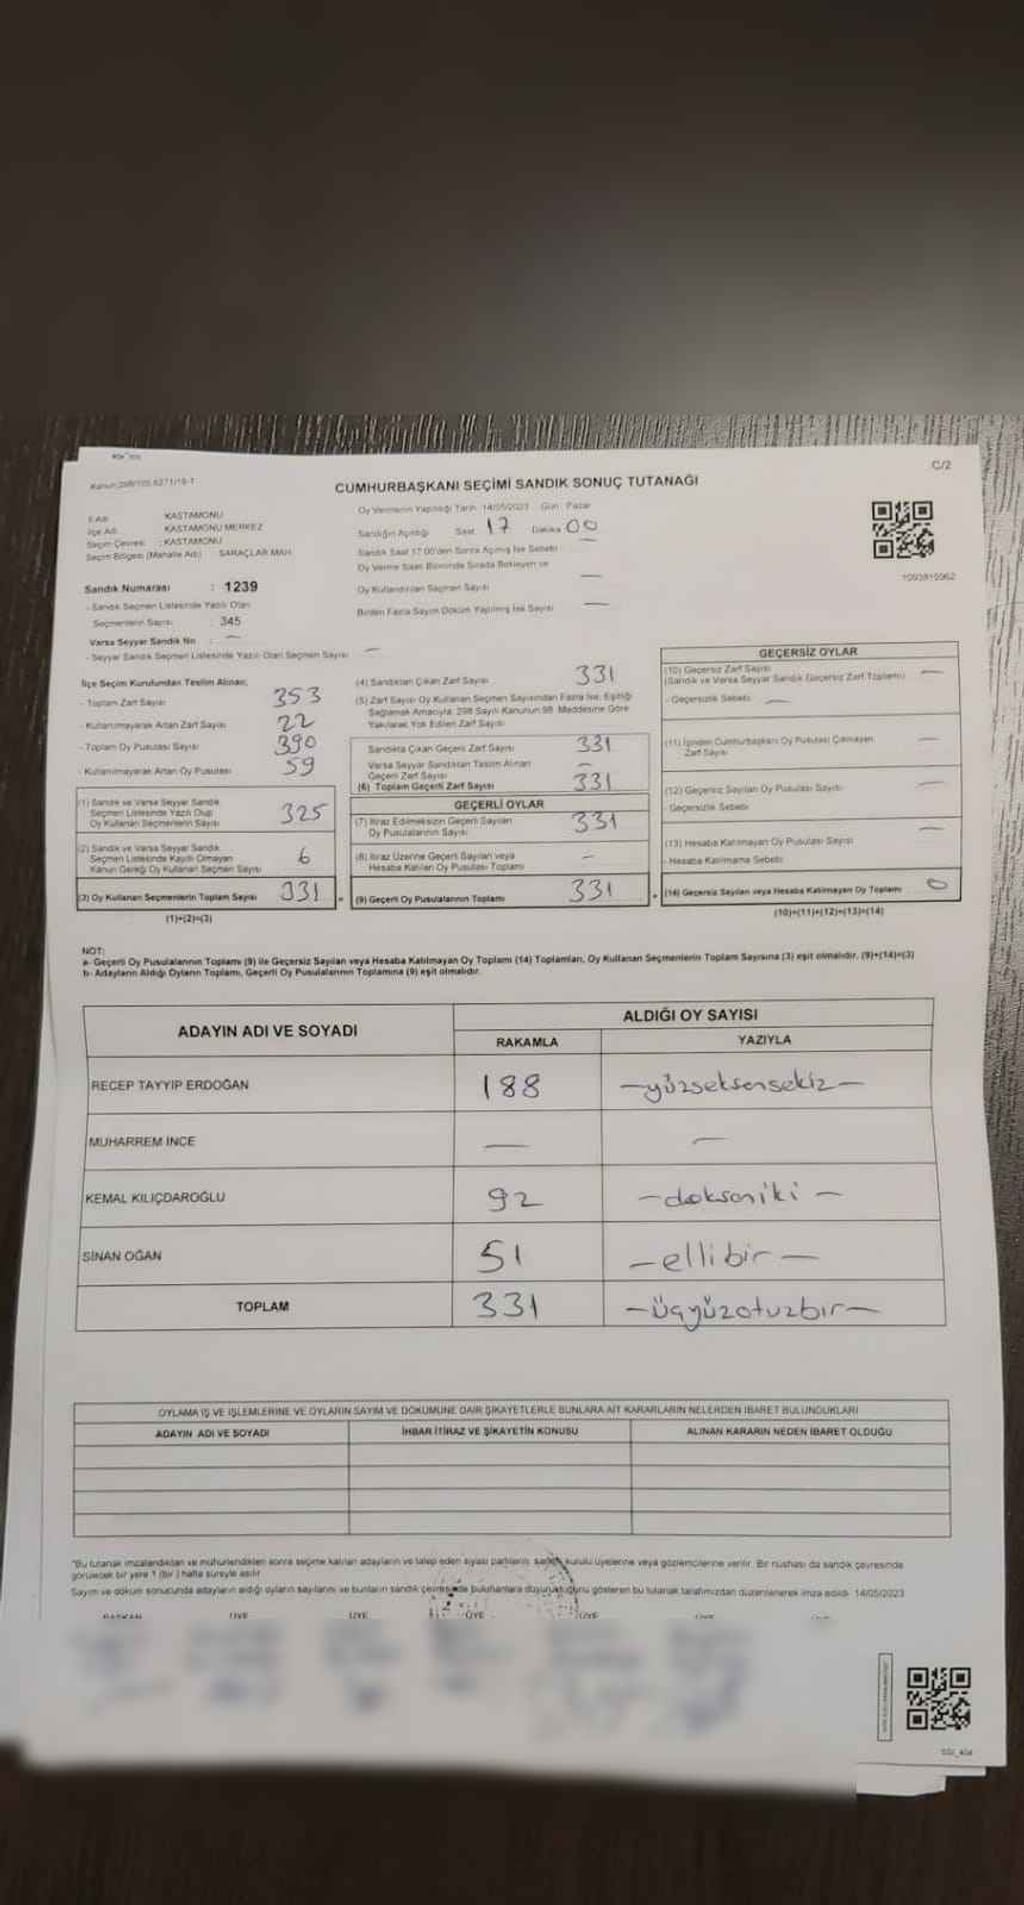 C/2
CUMHURBAŞKANI SEÇİMİ SANDIK SONUÇ TUTANAĞI
İl Adı KASTAMONU
İlçe Adı KASTAMONU MERKEZ
Seçim Çevresi : KASTAMONU
Seçim Bölgesi (Mahalle Adı) SARAÇLAR MAH.
Oy Vermenin Yapıldığı Tarih : 14/05/2023 Gün : Pazar
Sandığın Açıldığı Saat 17 Dakika 00
Sandık Saat 17:00'den Sonra Açılmış İse Sebebi
Oy Verme Saati Bitiminde Sırada Bekleyen ve
Oy Kullandırılan Seçmen Sayısı —
Birden Fazla Sayım Döküm Yapılmış İse Sayısı —
Sandık Numarası : 1239
- Sandık Seçmen Listesinde Yazılı Olan
Seçmenlerin Sayısı : 345
Varsa Seyyar Sandık No : —
- Seyyar Sandık Seçmen Listesinde Yazılı Olan Seçmen Sayısı —
İlçe Seçim Kurulundan Teslim Alınan;
- Toplam Zarf Sayısı 353
- Kullanılmayarak Artan Zarf Sayısı 22
- Toplam Oy Pusulası Sayısı 390
- Kullanılmayarak Artan Oy Pusulası 59
(1) Sandık ve Varsa Seyyar Sandık
Seçmen Listesinde Yazılı Olup
Oy Kullanan Seçmenlerin Sayısı 325
(2) Sandık ve Varsa Seyyar Sandık
Seçmen Listesinde Kayıtlı Olmayan
Kanun Gereği Oy Kullanan Seçmen Sayısı 6
(3) Oy Kullanan Seçmenlerin Toplam Sayısı 331
(1)+(2)=(3)
(4) Sandıktan Çıkan Zarf Sayısı 331
(5) Zarf Sayısı Oy Kullanan Seçmen Sayısından Fazla İse, Eşitliği
Sağlamak Amacıyla, 298 Sayılı Kanunun 98. Maddesine Göre
Yakılarak Yok Edilen Zarf Sayısı
Sandıkta Çıkan Geçerli Zarf Sayısı 331
Varsa Seyyar Sandıktan Teslim Alınan
Geçerli Zarf Sayısı —
(6) Toplam Geçerli Zarf Sayısı 331
GEÇERLİ OYLAR
(7) İtiraz Edilmeksizin Geçerli Sayılan
Oy Pusulalarının Sayısı 331
(8) İtiraz Üzerine Geçerli Sayılan veya
Hesaba Katılan Oy Pusulası Toplamı —
= (9) Geçerli Oy Pusulalarının Toplamı 331
1093810962
GEÇERSİZ OYLAR
(10) Geçersiz Zarf Sayısı —
(Sandık ve Varsa Seyyar Sandık Geçersiz Zarf Toplamı)
- Geçersizlik Sebebi —
(11) İçinden Cumhurbaşkanı Oy Pusulası Çıkmayan
Zarf Sayısı —
(12) Geçersiz Sayılan Oy Pusulası Sayısı —
- Geçersizlik Sebebi
(13) Hesaba Katılmayan Oy Pusulası Sayısı —
- Hesaba Katılmama Sebebi
+ (14) Geçersiz Sayılan veya Hesaba Katılmayan Oy Toplamı 0
(10)+(11)+(12)+(13)=(14)
NOT:
a- Geçerli Oy Pusulalarının Toplamı (9) ile Geçersiz Sayılan veya Hesaba Katılmayan Oy Toplamı (14) Toplamları, Oy Kullanan Seçmenlerin Toplam Sayısına (3) eşit olmalıdır. (9)+(14)=(3)
b- Adayların Aldığı Oyların Toplamı, Geçerli Oy Pusulalarının Toplamına (9) eşit olmalıdır.
ADAYIN ADI VE SOYADI
ALDIĞI OY SAYISI
RAKAMLA YAZIYLA
RECEP TAYYİP ERDOĞAN 188 —yüzseksensekiz—
MUHARREM İNCE — —
KEMAL KILIÇDAROĞLU 92 —doksaniki—
SİNAN OĞAN 51 —ellibir—
TOPLAM 331 —üçyüzotuzbir—
OYLAMA İŞ VE İŞLEMLERİNE VE OYLARIN SAYIM VE DÖKÜMÜNE DAİR ŞİKAYETLERLE BUNLARA AİT KARARLARIN NELERDEN İBARET BULUNDUKLARI
ADAYIN ADI VE SOYADI İHBAR İTİRAZ VE ŞİKAYETİN KONUSU ALINAN KARARIN NEDEN İBARET OLDUĞU
*Bu tutanak imzalandıktan ve mühürlendikten sonra seçime katılan adayların ve talep eden siyasi partilerin sandık kurulu üyelerine veya gözlemcilerine verilir. Bir nüshası da sandık çevresinde
görülecek bir yere 1 (bir ) hafta süreyle asılır.
Sayım ve döküm sonucunda adayların aldığı oyların sayılarını ve bunların sandık çevresinde bulunanlara duyurulduğunu gösteren bu tutanak tarafımızdan düzenlenerek imza edildi. 14/05/2023
BAŞKAN ÜYE ÜYE ÜYE ÜYE ÜYE ÜYE